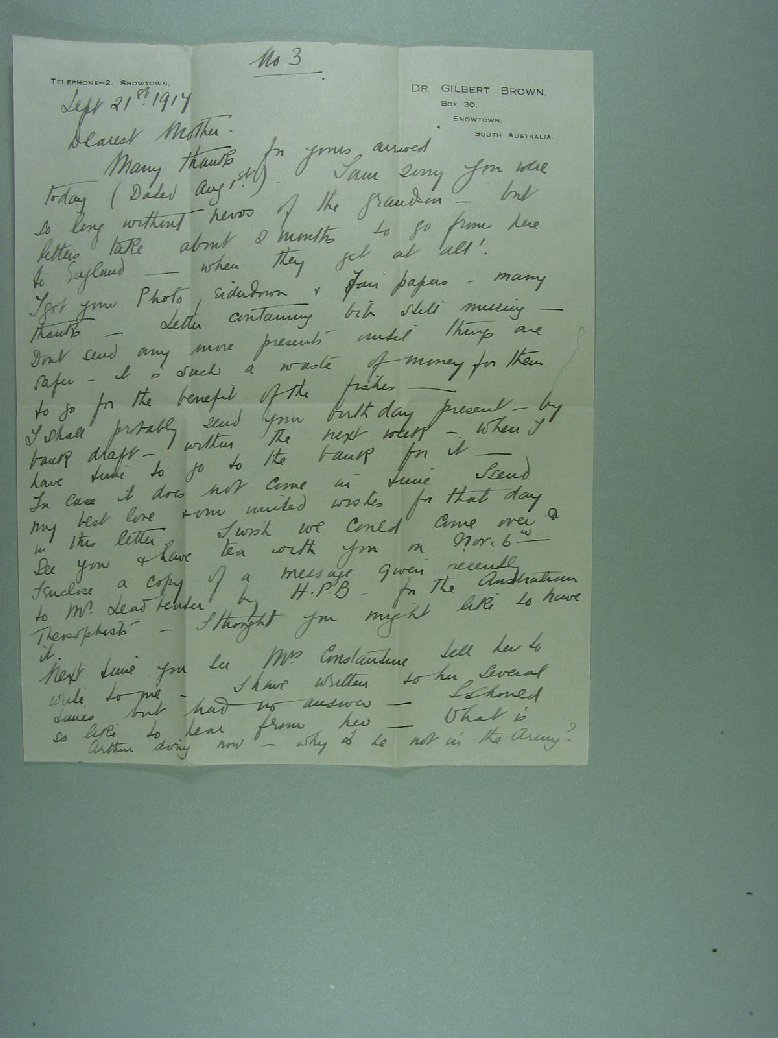 No 3
TELEPHONE—2, SNOWTOWN.
DR. GILBERT BROWN,
BOX 30,
SNOWTOWN,
SOUTH AUSTRALIA.
Sept 21st 1917
Dearest Mother.
Many thanks for yours arrived
today (Dated Aug 1st). I am sorry you were
so long without news of the grandson — but
letters take about 2 months to go from here
to England — when they get at all!
I got your Photo, eiderdown & papers — many
thanks — Letter containing bib still missing —
Dont send any more presents until things are
safer — it is such a waste of money for them
to go for the benefit of the fishes —
I shall probably send your birthday present — by
bank draft — within the next week — when I
have time to go to the bank for it —
In case it does not come in time I send
my best love & our united wishes for that day
in this letter. I wish we could come over &
see you & have tea with you on Nov. 6th —
I enclose a copy of a message given recently
to Mr Leadbeater by H.P.B. for the Australian
Theosophists — I thought you might like to have
it.
Next time you see Mrs Constantine tell her to
write to me — I have written to her several
times but had no answer — I should
so like to hear from her — What is
Arthur doing now — why is he not in the Army?